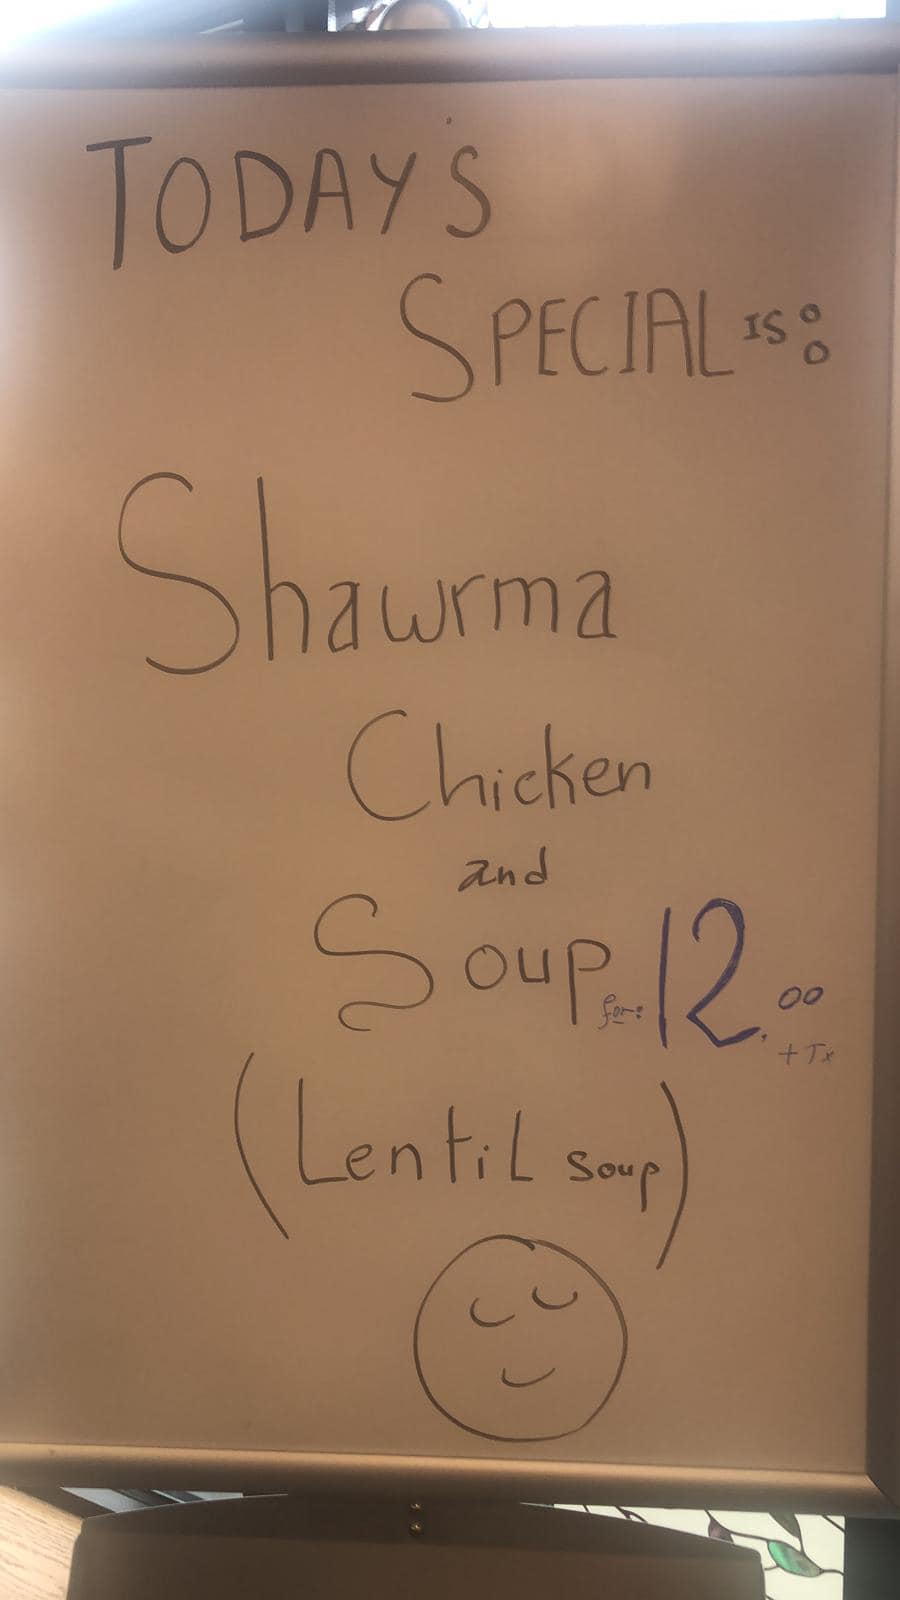 TODAY'S
SPECIAL IS:
Shawrma
Chicken
and
Soup for: 12.00
+ Tx
(Lentil soup)